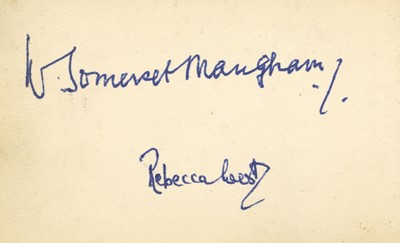 W. Somerset Maugham
Rebecca West